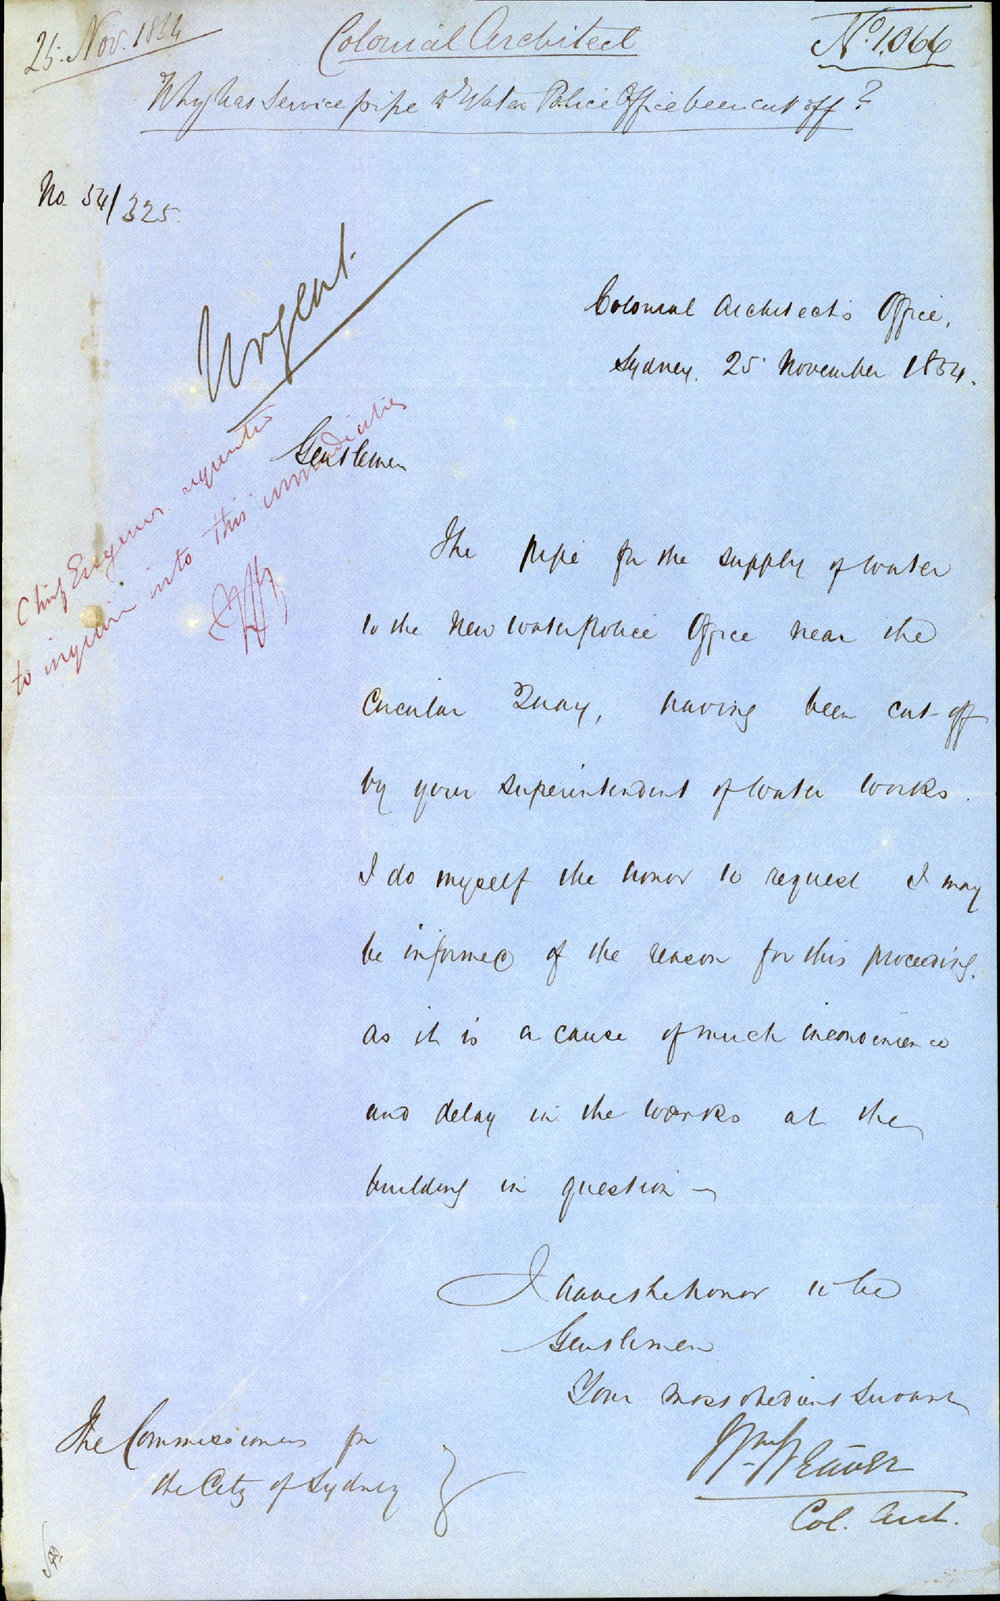 25. Nov. 1854
Colonial Architect
No. 1.066
Why has Service pipe to Water Police Office been cut off?
No. 54/325.
Urgent.
Colonial Architect's Office,
Sydney. 25 November 1854.
Gentlemen
Chief Engineer requested
to inquire into this immediately
The pipe for the supply of water
to the New Water Police Office near the
Circular Quay, having been cut off
by your Superintendent of Water Works.
I do myself the honor to request I may
be informed of the reason for this proceeding.
as it is a cause of much inconvenience
and delay in the works at the
building in question
I have the honor to be
Gentlemen
Your most obedient Servant
Wm Weaver
Col. Arct.
The Commissioners for
the City of Sydney